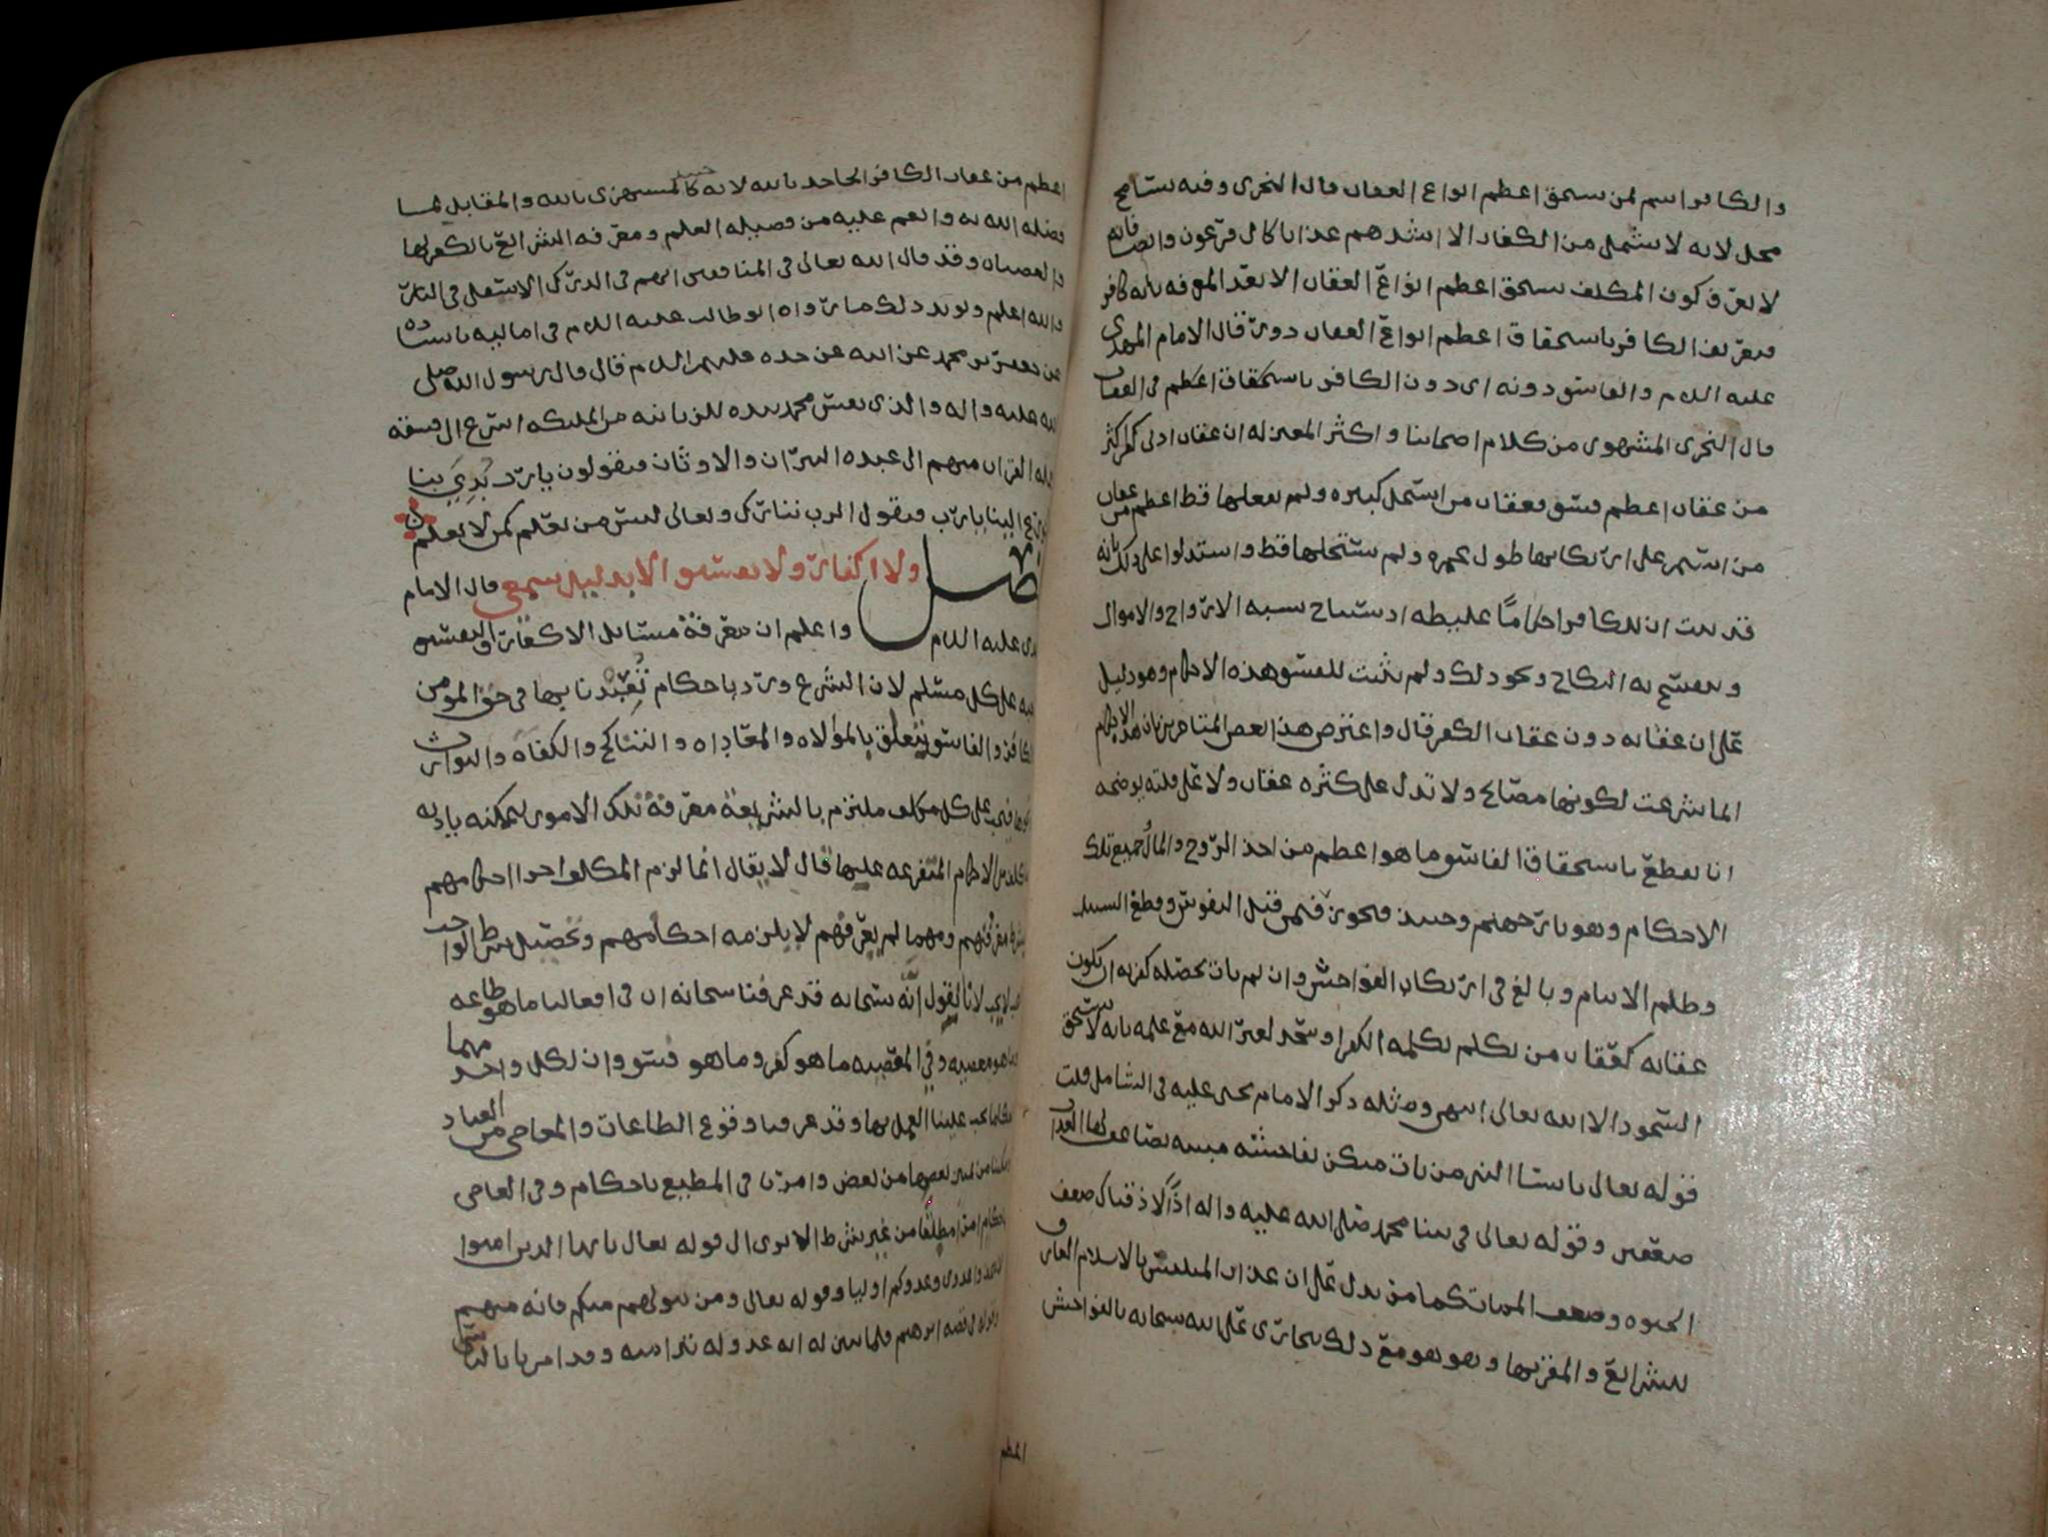 والكافر اسم لمن يستحق اعظم انواع العقاب قال النجري وفيه تسامح
محل لانه لا يشمل من الكفار الا اشدهم عذابا كال فرعون وايضا فانه
لا يعرف كون المكلف يستحق اعظم انواع العقاب الا بعد المعرفه بانه كافر
فتعريف الكافر باستحقاق اعظم انواع العقاب دور قال الامام المهدي
عليه السلام والفاسق دونه اي دون الكافر باستحقاق اعظم في العقاب
قال النجري المشهور من كلام اصحابنا واكثر المعتزله ان عقاب ادنى كفر اكثر
من عقاب اعظم فسق فعقاب من استحل كبيره ولم يفعلها قط اعظم من عقاب
من استمر على ارتكابها طول عمره ولم يستحلها قط واستدلوا على ذلك بانه
قد ثبت ان للكافر احكاما غليظه استباح سبيه الازواج والاموال
وينفسخ به النكاح ونحو ذلك ولم يثبت للفسق هذه الاحكام وهو دليل
على ان عقابه دون عقاب الكفر قال واعترض هذا بعض المتاخرين بان هذه الاحكام
انما شرعت لكونها مصالح ولا تدل على كثره عقاب ولا على قلته يوضحه
انا نقطع باستحقاق الفاسق ما هو اعظم من اخذ الروح والمال جميع تلك
الاحكام وهو نار جهنم وحينئذ فيجوز فيمن قتل النفوس وقطع السبيل
وظلم الانام وبالغ في ارتكاب الفواحش وان لم يات بخصله كفريه ان يكون
عقابه كعقاب من تكلم بكلمه الكفر او سجد لغير الله مع علمه بانه لا يستحق
السجود الا الله تعالى انتهى ومثله ذكر الامام يحيى عليه في الشامل قلت
قوله تعالى يا نسا النبي من يات منكن بفاحشه مبينه يضاعف لها العذاب
ضعفين وقوله تعالى في نبينا محمد صلى الله عليه واله اذا لاذقناك ضعف
الحيوه وضعف الممات كما من يدل على ان عذاب المتلبس بالاسلام العارف
للشرائع والمقر بها وهو هو مع ذلك يتجارى على الله سبحانه بالفواحش
اعظم
اعظم من عقاب الكافر الجاحد بالله لانه حينئذ كالمستهزي بالله والمقابل لما
فضله الله به وانعم عليه من فضيله العلم ومعرفه الشرائع بالكفر لها
والعصيان وقد قال الله تعالى في المنافقين انهم في الدرك الاسفل في النار
والله اعلم ويويد ذلك ما رواه ابو طالب عليه السلام في اماليه باسناده
عن جعفر بن محمد عن ابيه عن جده عليهم السلام قال قال رسول الله صلى
الله عليه واله والذي نفس محمد بيده للزبانيه من الملئكه اسرع الى فسقه
حمله القران منهم الى عبده النيران والاوثان فيقولون يا رب بدئ بنا
سورع الينا يا رب فيقول الرب تبارك وتعالى ليس من يعلم كمن لا يعلم
فصل ولا اكفار ولا تفسيق الا بدليل سمعي قال الامام
المهدي عليه السلام واعلم ان معرفة مسائل الاكفار والتفسيق
على كل مسلم لان الشرع ورد باحكام تعبدنا بها في حق المومن
والكافر والفاسق يتعلق بالموالاه والمعاداه والتناكح والكفاه والتوارث
ونحوها فيجب على كل مكلف ملتزم بالشريعة معرفة تلك الامور ليمكنه تاديه
ما كلف من الاحكام المتفرعه عليها قال لا يقال انما لزم المكلف اجرا احكامهم
بشرط معرفتهم ومهما لم يعرفهم لا يلزمه احكامهم وتحصيل شرط الواجب
ليجب لا يجب لانا نقول انه سبحانه قد عرفنا سبحانه ان في افعالنا ما هو طاعه
وما هو معصيه وفي المعصيه ما هو كفر وما هو فسق وان لكل واحد منهما
احكاما يجب علينا العمل بها وقد عرفنا وقوع الطاعات والمعاصي من العباد
ومكننا من تمييز بعضها من بعض وامرنا في المطيع باحكام وفي العاصي
باحكام امرا مطلقا من غير شرط الا ترى الى قوله تعالى يا ايها الذين امنوا
لا تتخذوا عدوي وعدوكم اوليا وقوله تعالى ومن يتولهم منكم فانه منهم
وقوله في قصه ابرهيم فلما تبين له انه عدو لله تبرا منه وقد امرنا بالتاسي